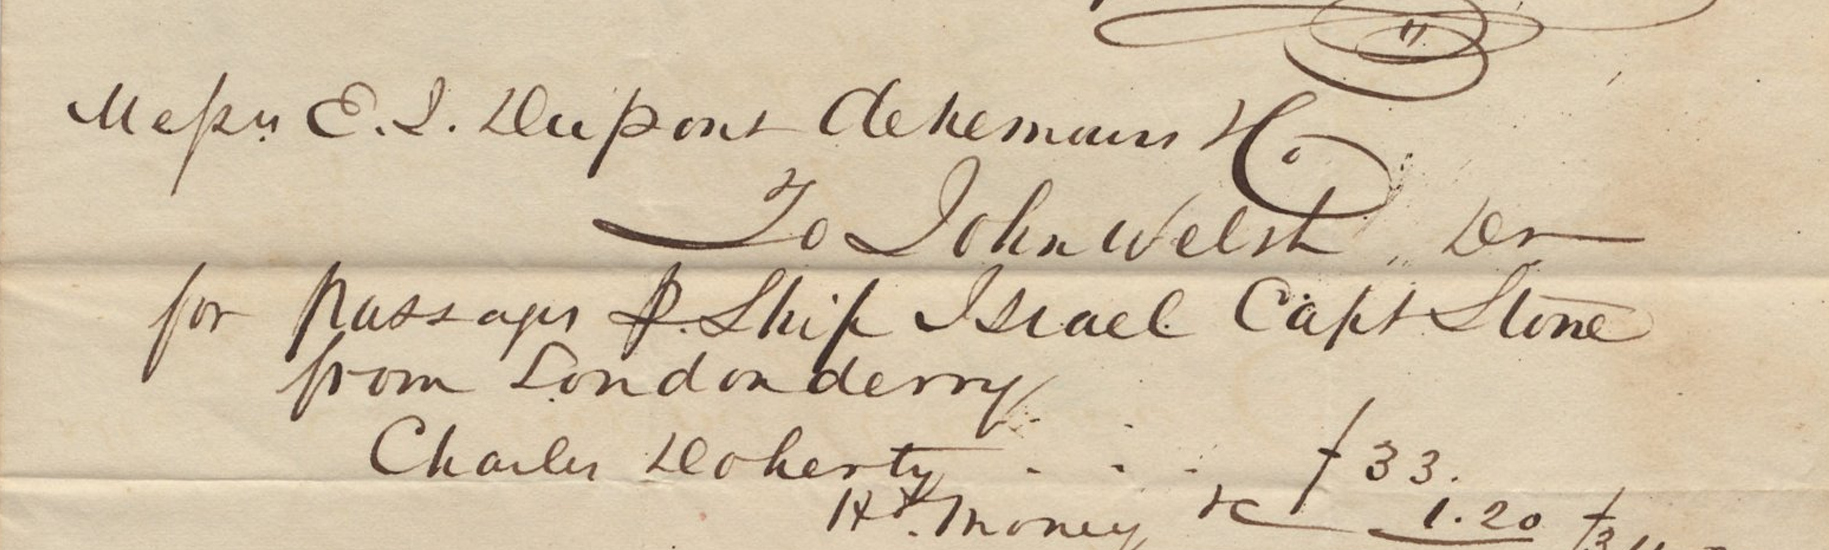 Messrs E. I. Dupont de Nemours & Co.
To John Welsh Dr
for passages P. Ship Israel Capt Stone
from Londonderry
Charles Doherty . . . $33.
Hd. Money &c 1.20